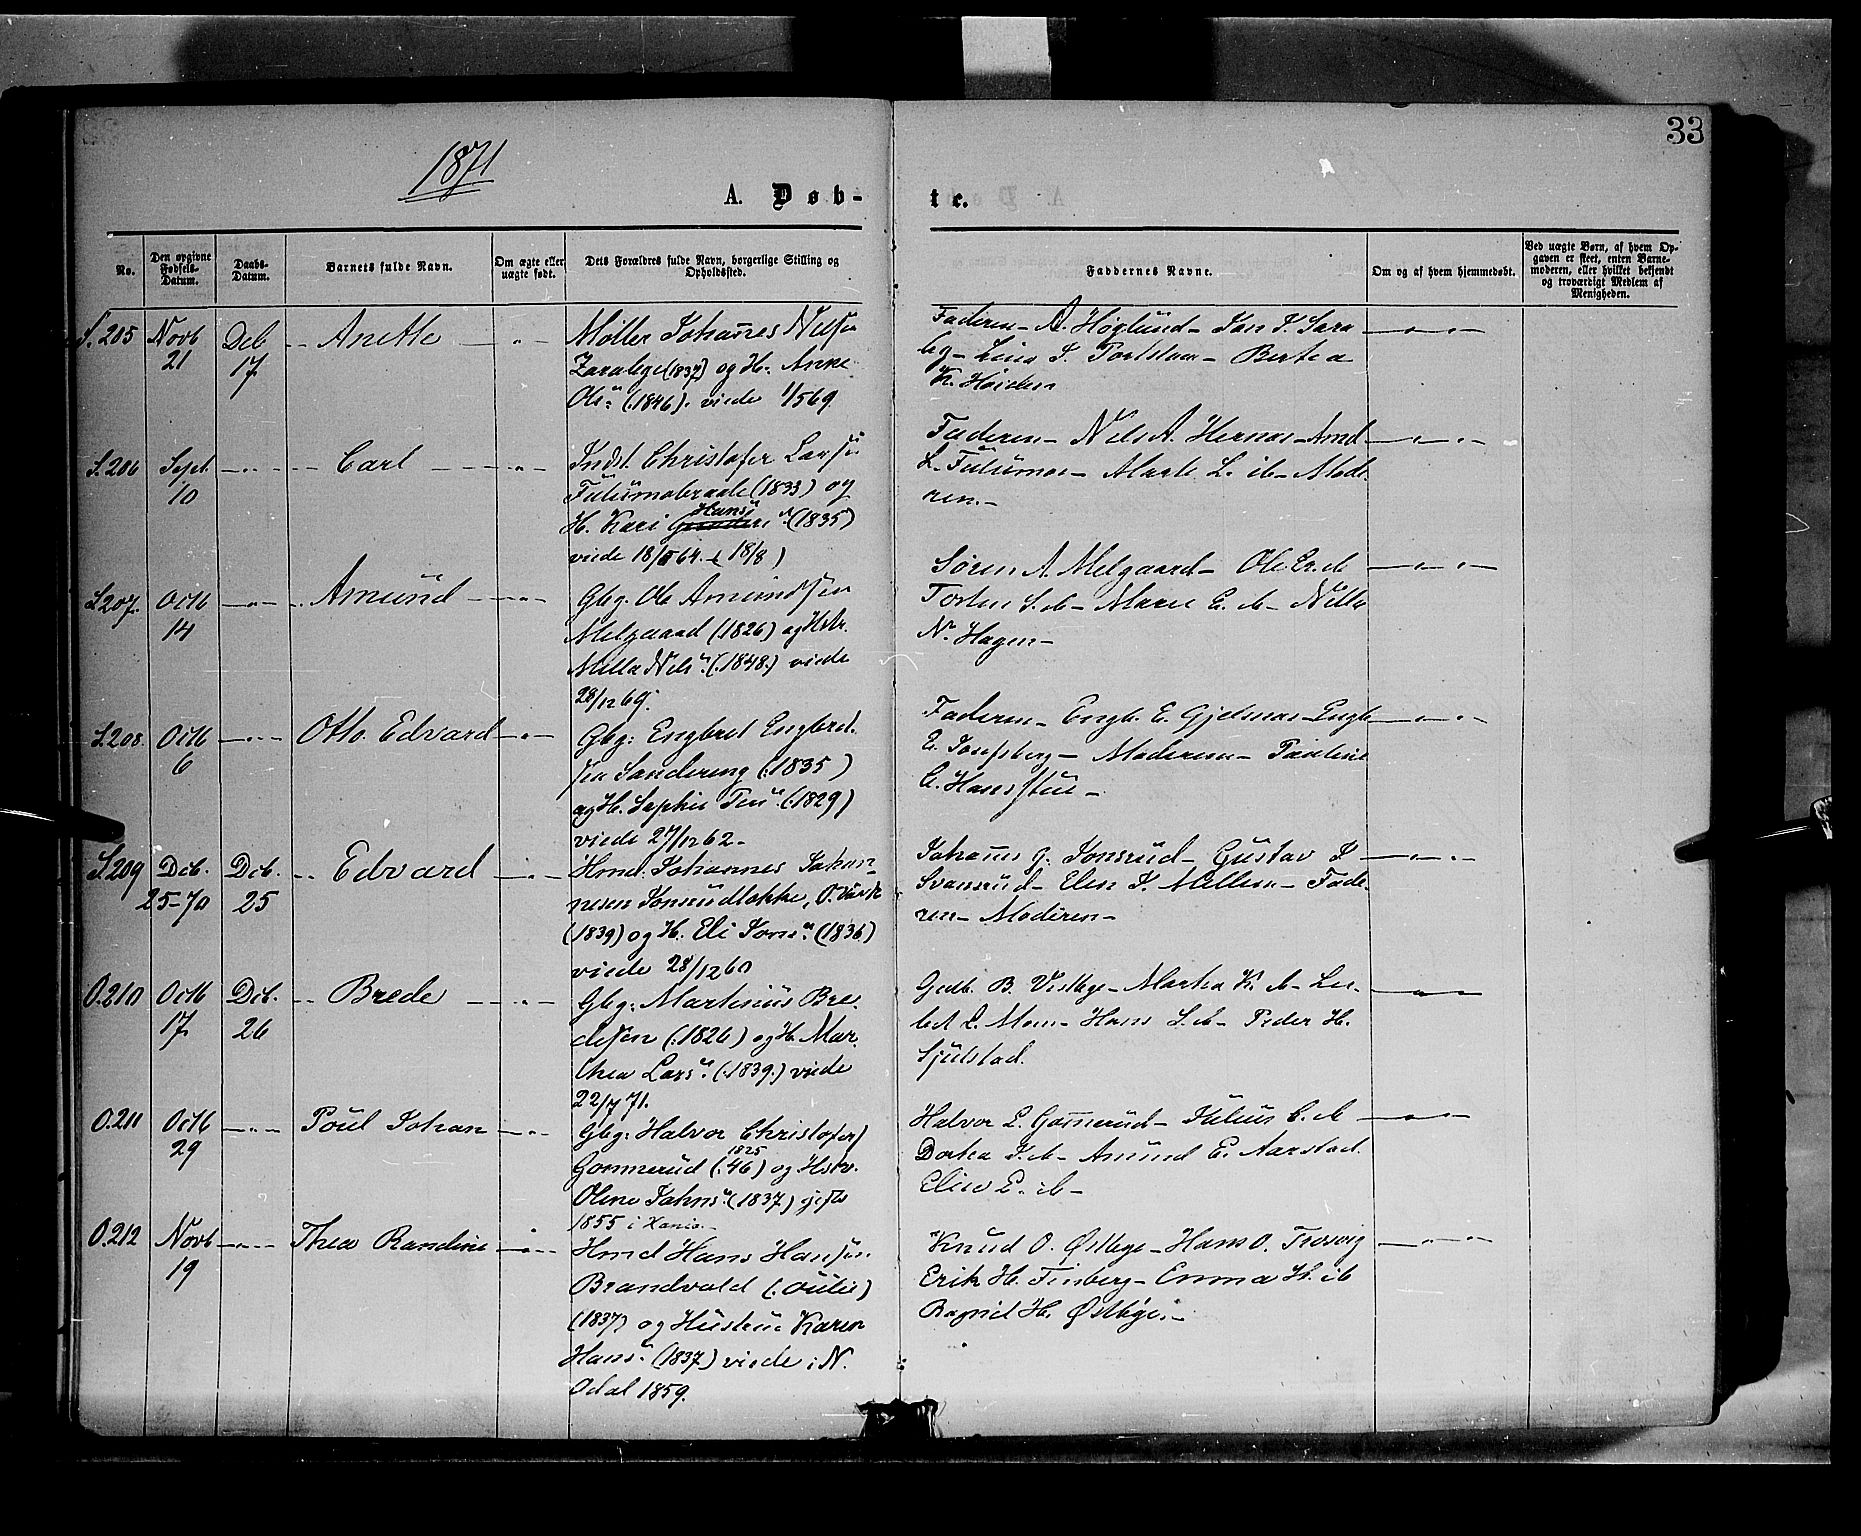 33
1871
A. Døb-
te.
No.
Den opgivne Fødsels-Datum.
Daabs-Datum.
Barnets fulde Navn.
Om ægte eller uægte født.
Dets Forældres fulde Navn, borgerlige Stilling og Opholdssted.
Faddernes Navne.
Om og af hvem hjemmedøbt.
Ved uægte Børn, af hvem Op-
gaven er skeet, enten Barne-
moderen, eller hvilket bekjendt
og troværdigt Medlem af
Menigheden.
S. 205 Novb 21 Deb 17 Anette
Møller Johannes Nelsen
(1837) og H. Anne
Ols" (1846). viede 4/5 69
Faderen - A. Høglund - Jon J. Sara
Berte a
K. Høiden
S. 206 Sept 10 Carl
Indst. Christofer Larsen
(1833) og
H. Kari Hans" (1835)
viede 18/ 64. (18/8)
Faderen - Nels A. Hernas - Amd
L. Fulumoe - Marte L. ib - Mode-
ren. -
S 207. Octb 14 Amund
Gbg: Ole Amundsen
Melgaard (1826) og Hstr.
Milla Nels" (1848.) viede
28/12 69.
Søren A. Melgaard - Ole Er. ib
Torsten S. ib - Maren E. ib - Nille
N. Hagen -
S. 208. Octb 6 Otto Edvard
Gbg: Engbret Engbret-
sen Sandereng (1835)
og H. Sophie Pau" (1829)
viede 27/12 62 -
Faderen - Engb. E. Gjelsnas - Engb
E. Josefsberg - Moderen - Pauline
C. Hansstue -
S 209 Deb. 25-70 Deb. 25 Edvard
Hmd. Johannes Johan-
nesen Jonsrudløkke, O.
(1839) og H. Eli Jons" (1836)
viede 28/12 60
Johannes G. Jonsrud - Gustav J
Svensrud - Elen J. Mellem - Fade-
ren - Moderen -
O. 210 Octb 17 Deb. 26 Brede
Gbg: Martinus Bre-
desen (1826) og H. Mar-
thea Lars" (1839.) viede
22/7 71.
Gudb. B. Vestbye - Martea K. ib - Lis-
bet L. Moen - Hans L. ib - Peder H.
Sjulstad.
O. 211 Octb 29 Poul Johan
Gbg: Halvor Christofer
1825
Gommerud (46) og Hstr.
Oline Johns" (1837) gifte
1855 i Xania -
Halvor L. Gommerud - Julius C. ib
Dortea J. ib - Amund E. Aarstad.
Elise E. ib -
O. 212 Novb 19 Thea Randine
Hmd Hans Hansen
Brandvold (1837) og Hustru Karen
Hans" (1837) viede i N.
Odal 1859.
Knud O. Østbye - Hans O. Trosvig
Erik H. Finberg - Emma H. ib
Ragnild H. Østbye. -